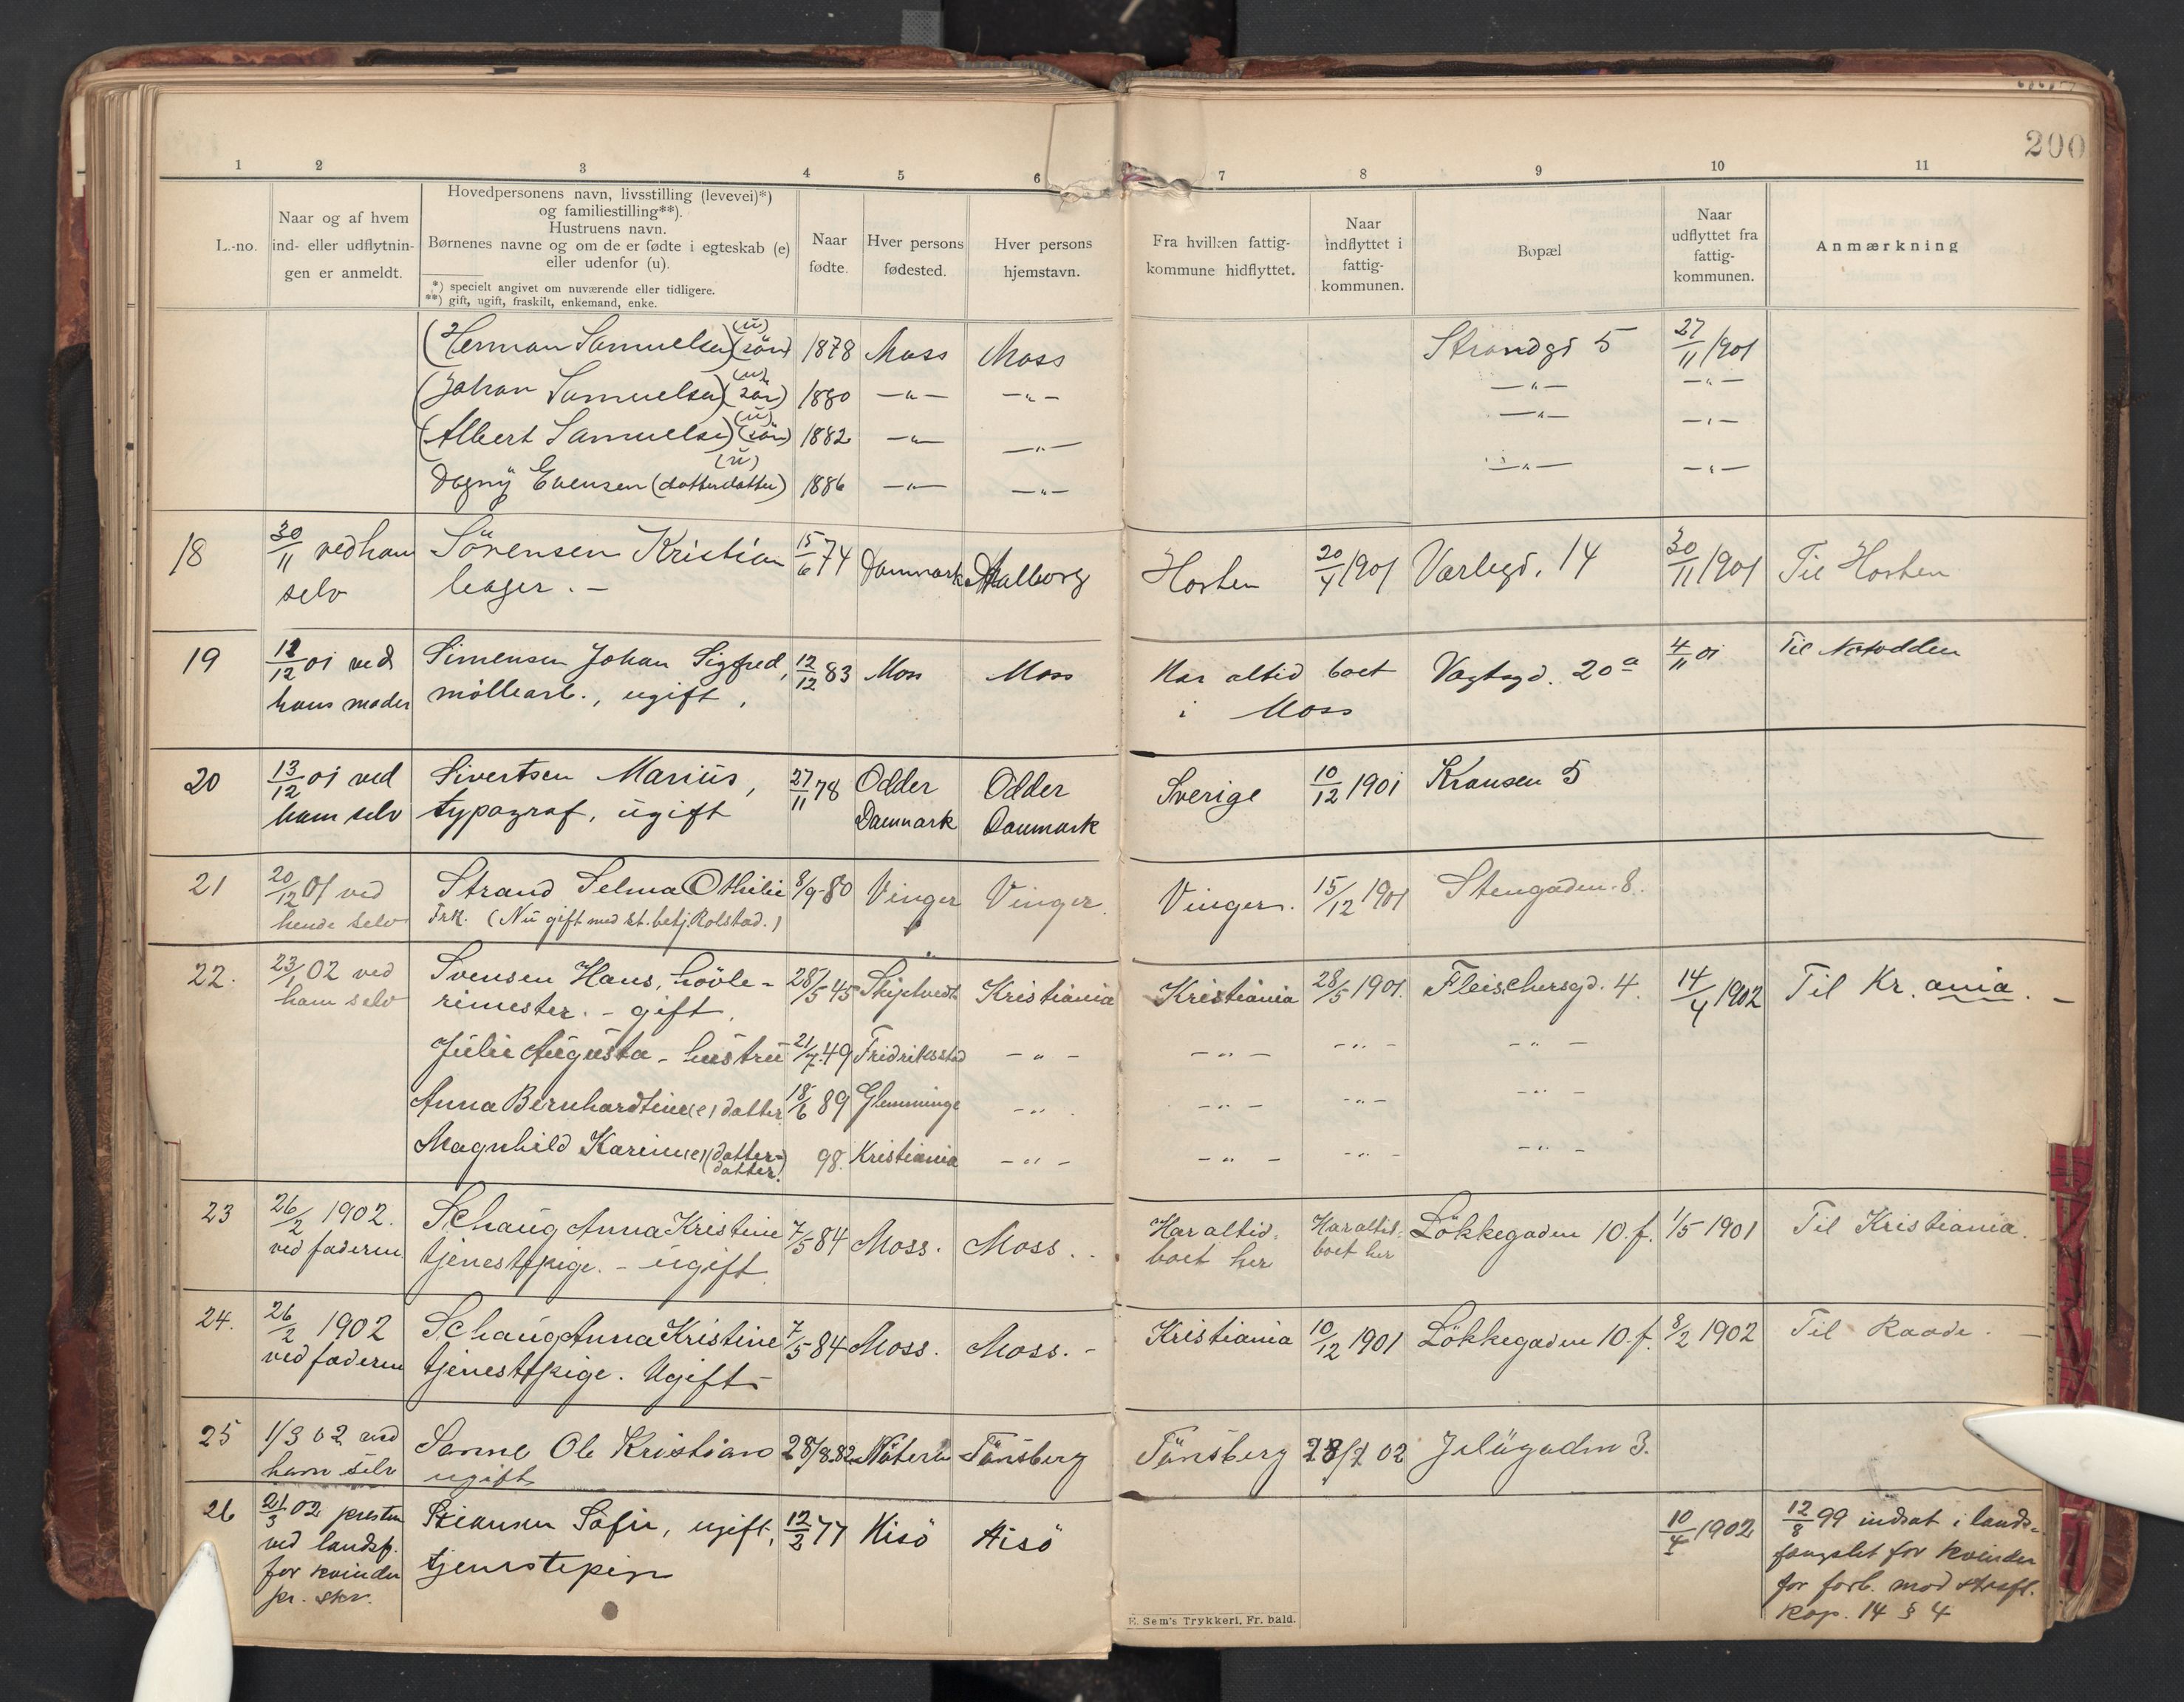 200
1 2 3 4 5 6 7 8 9 10 11
L.-no.
Naar og af hvem
ind- eller udflytnin-
gen er anmeldt.
Hovedpersonens navn, livsstilling (levevei)*)
og familiestilling**).
Hustruens navn.
Børnenes navne og om de er fødte i egteskab (e)
eller udenfor (u).
*) specielt angivet om nuværende eller tidligere.
**) gift, ugift, fraskilt, enkemand, enke.
Naar
fødte.
Hver persons
fødested.
Hver persons
hjemstavn.
Fra hvilken fattig-
kommune hidflyttet.
Naar
indflyttet i
fattig-
kommunen.
Bopæl
Naar
udflyttet fra
fattig-
kommunen.
Anmærkning
(Herman Samuelsen) (sön) (u) 1878 Moss Moss Strandgd 5 27/11 1901
(Johan Samuelsen) (sön) (u) 1880 —„— —„— —„— —„—
(Albert Samuelsen) (sön) (u) 1882 —„— —„— —„— —„—
Dagny Evensen (datterdatter) (u) 1886 —„— —„— —„— —„—
18 30/11 ved ham Sörensen Kristian 15/6 74 Danmark Aalborg Horten 20/4 1901 Varlegd. 14 30/11 1901 Til Horten
selv
19 12/12 01 ved Simensen Johan Sigfred, 12/12 83 Moss Moss Har altid boet Vogtsgd. 20a 4/11 01 Til Notodden
hans moder möllearb., ugift, i Moss
20 13/12 01 ved Sivertsen Marius, 27/11 78 Odder Odder Sverige 10/12 1901 Kransen 5
ham selv typograf, ugift Danmark Danmark
21 20/12 01 ved Strand Selma Othilie 8/9-80 Vinger Vinger Vinger. 15/12 1901 Stengaden. 8.
hende selv Frk. (Nu gift med st. betj. Rolstad.)
22. 23/1 02 ved Svensen Hans, hövle- 28/5 45 Skiptvedt Kristiania Kristiania 28/5 1901. Fleischersgd. 4. 14/4 1902 Til Kr.ania. —
ham selv rimester. - gift.
Julie Augusta - hustru 21/7 49 Fridriksstad - „ - - „ - - „ - - „ -
Anna Bernhardtine (e) datter 18/6 89 Glemminge - „ - „ - - „ - - „ -
Magnhild Karine (e) (datter- 98. Kristiania - „ - - „ - - „ - - „ -
datter.)
23 26/2 1902. Schaug Anna Kristine 7/5 84 Moss. Moss. Har altid Har altid Lökkegaden 10. f. 1/5 1901 Til Kristiania.
ved faderen tjenestpige. - ugift. boet her boet her
24. 26/2 1902 Schaug Anna Kristine 7/5 84 Moss. Moss. - Kristiania 10/12 1901 Lökkegaden 10. f. 8/2 1902 Til Raade. —
ved faderen tjenestpige. Ugift -
25 1/3 02 ved Sanne Ole Kristian 28/8 82 Nöterö Tönsberg Tönsberg 28/2 02 Jelögaden 3.
ham selv ugift
26 21/3 02 presten Sofie, ugift, 12/2 77 Hisö Hisö 10/4 1902 12/8 99 indsat i lands-
ved landsf. tjenestepige fængslet for kvinder
for kvinder for forb. mod straffl.
pr. skr. kap. 14 § 4
E. Sem's Trykkeri, Fr. hald.